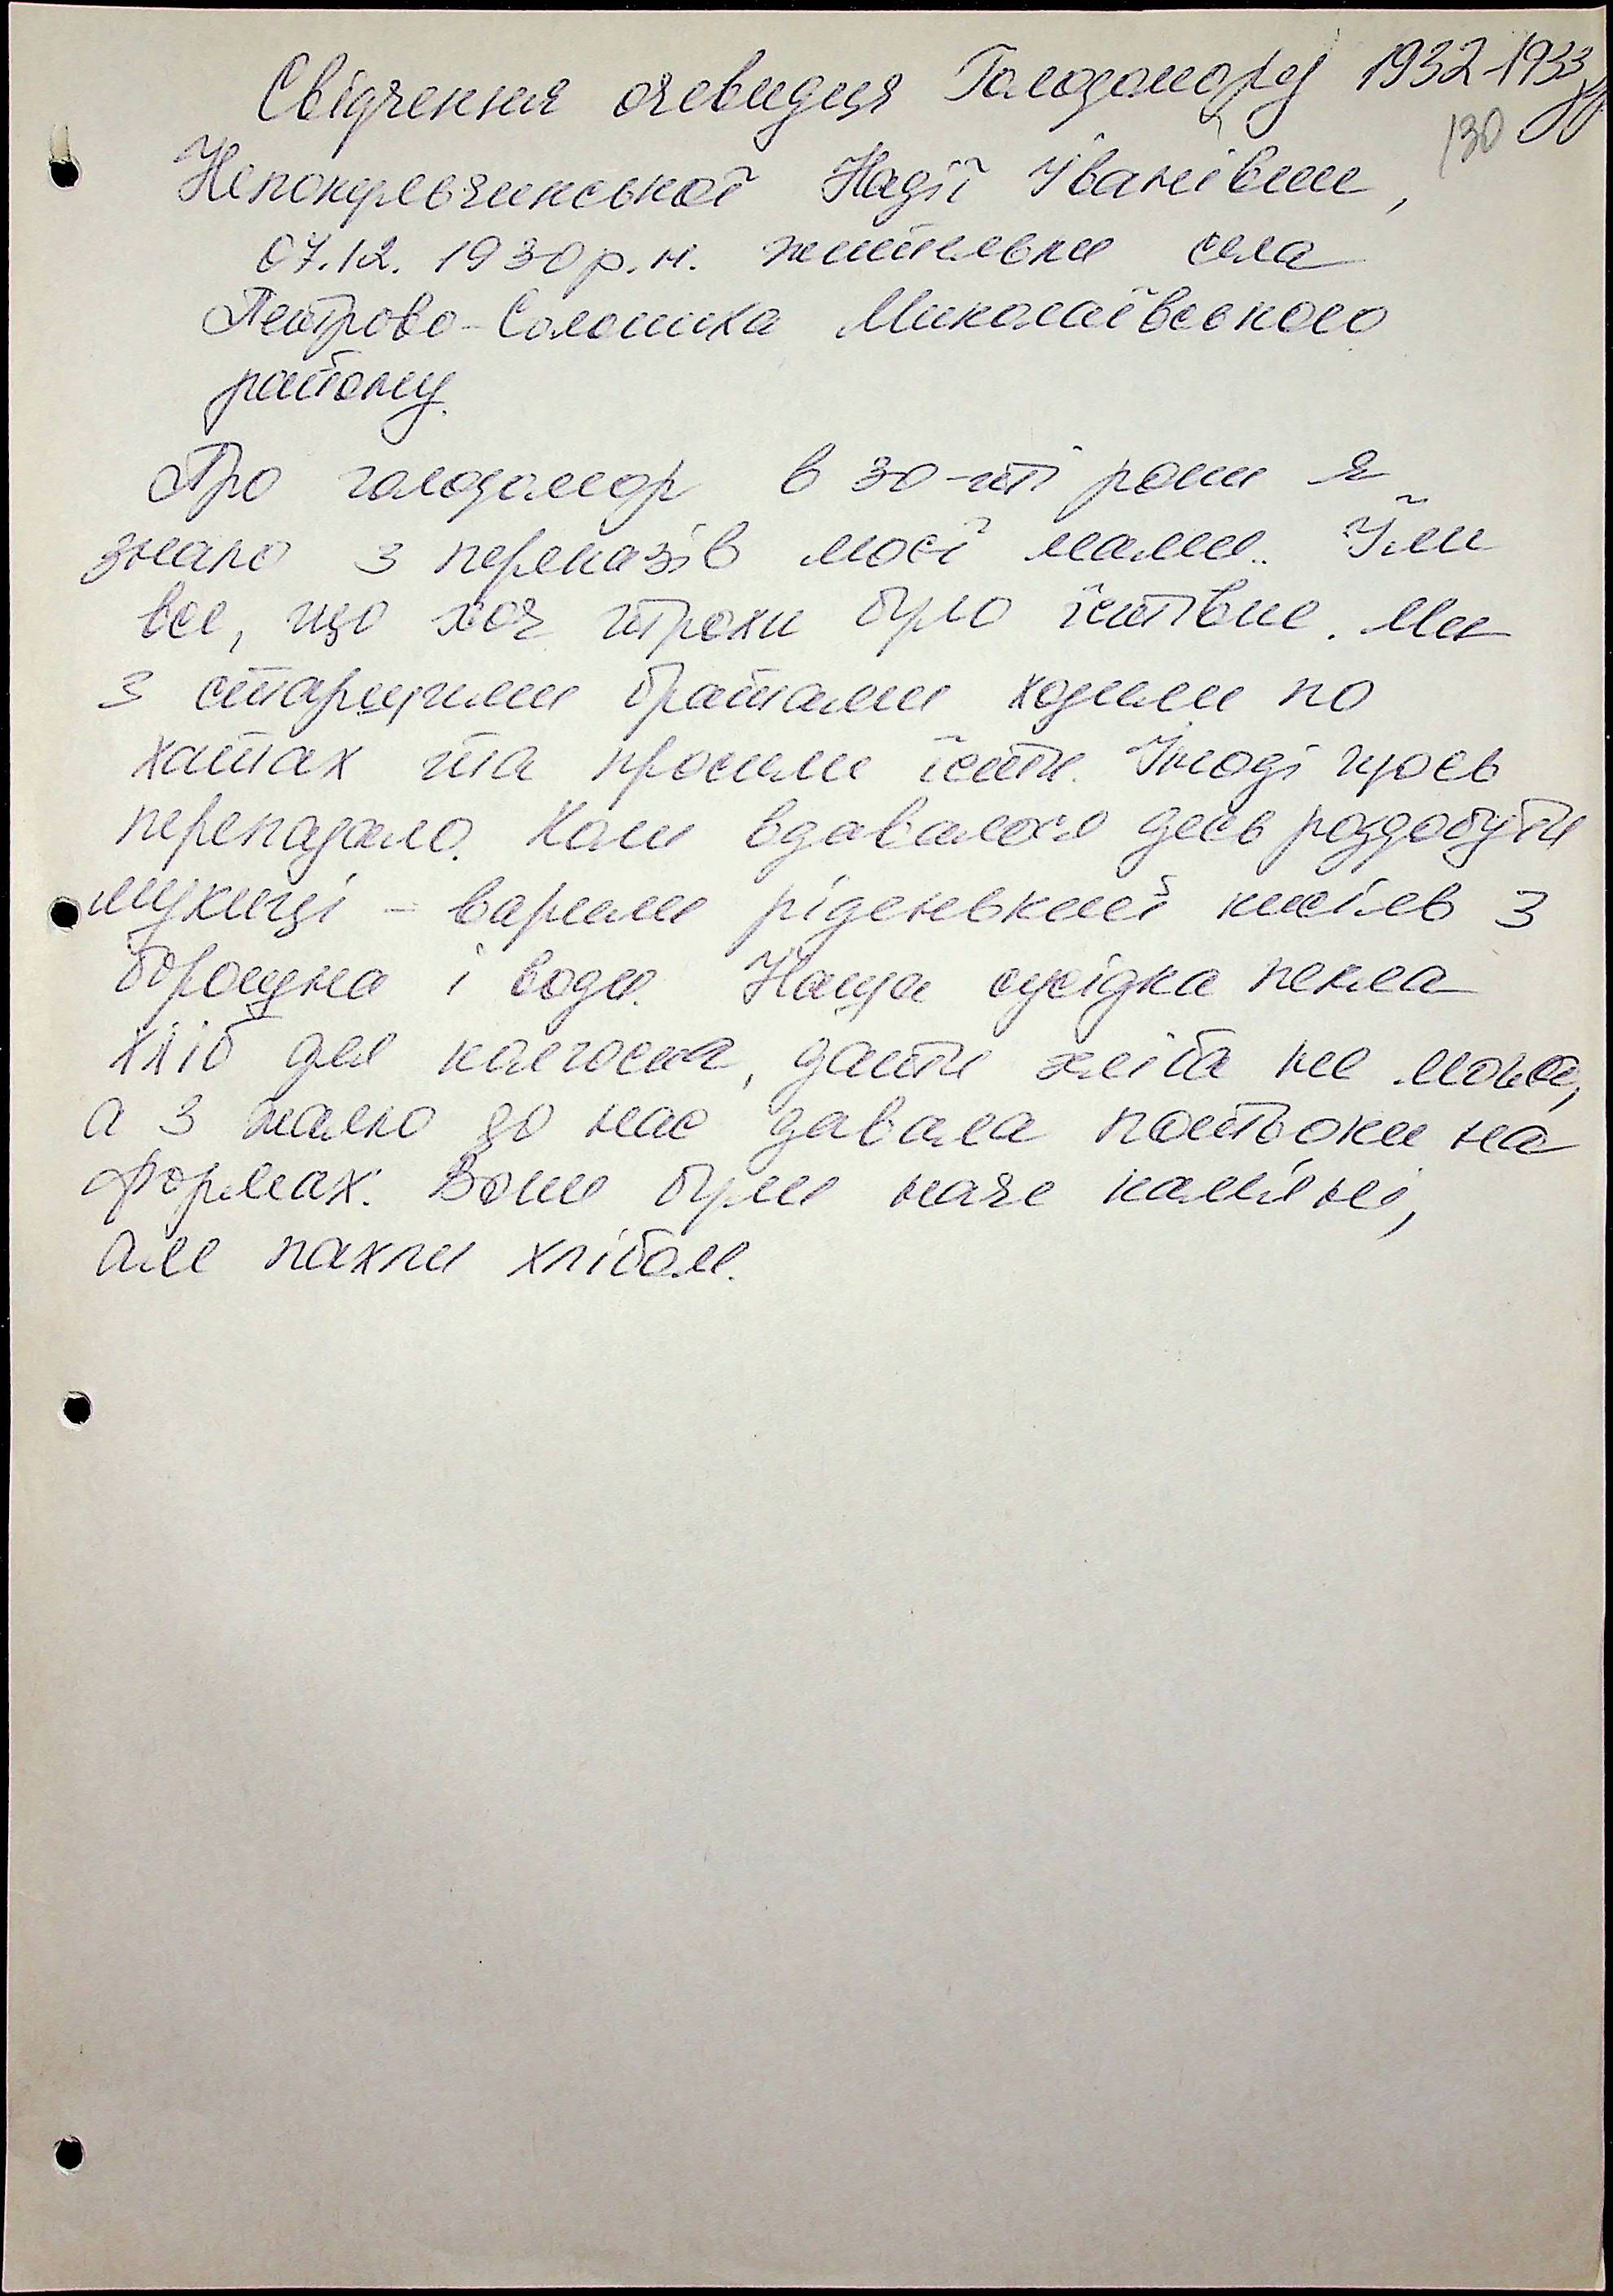 Свідчення очевидця Голодомору 1932-1933рр
130
Непокульчинської Надії Іванівни,
07.12. 1930 р.н. жительки села
Петрово-Солониха Миколаївського
району.
Про голодомор в 30-ті роки я
знаю з переказів моєї мами. Їли
все, що хоч трохи було їстівне. Ми
з старшими братами ходили по
хатах та просили їсти. Іноді щось
перепадало. Коли вдавалося десь роздобути
мукиці - варили ріденький кисіль з
борошна і води. Наша сусідка пекла
хліб для колгоспа, дати хліба не могла,
а з жалю до нас давала потьоки на
формах. Вони були наче кам'яні,
але пахли хлібом.